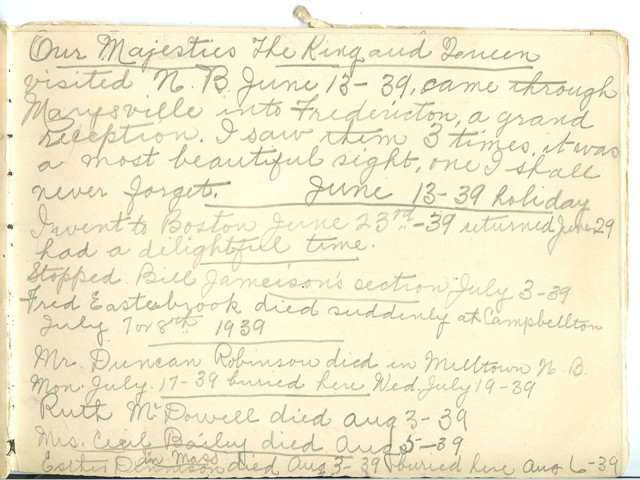 Our Majesties The King and Queen
visited N. B. June 13-39, came through
Marysville into Fredericton, a grand
reception. I saw them 3 times, it was
a most beautiful sight, one I shall
never forget. June 13-39 holiday
I went to Boston June 23rd-39 returned June 29
had a delightful time.
Stopped Bill Jameison's section July 3-39
Fred Easterbrook died suddenly at Campbellton
July 7 or 8th 1939
Mr. Duncan Robinson died in Milltown N. B.
Mon. July. 17-39 buried here Wed, July 19-39
Ruth McDowell died Aug 3-39
Mrs. Cecil Bailey died Aug 5-39
in Mass
Esther Dennison died Aug 3-39 buried here Aug 6-39